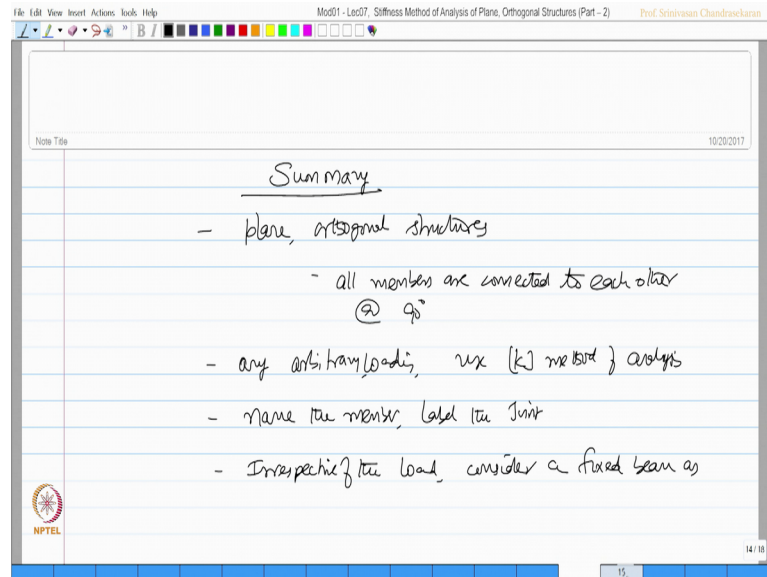 File Edit View Insert Actions Tools Help
Mod01 - Lec07, Stiffness Method of Analysis of Plane, Orthogonal Structures (Part – 2)
Prof. Srinivasan Chandrasekaran
B I
Note Title
10/20/2017
Summary
- plane, orthogonal structures
- all members are connected to each other
@ 90°
- any arbitrary loading, use [K] method of analysis
- name the member, label the joint
- Irrespective of the load, consider a fixed beam as
NPTEL
14 / 18
15